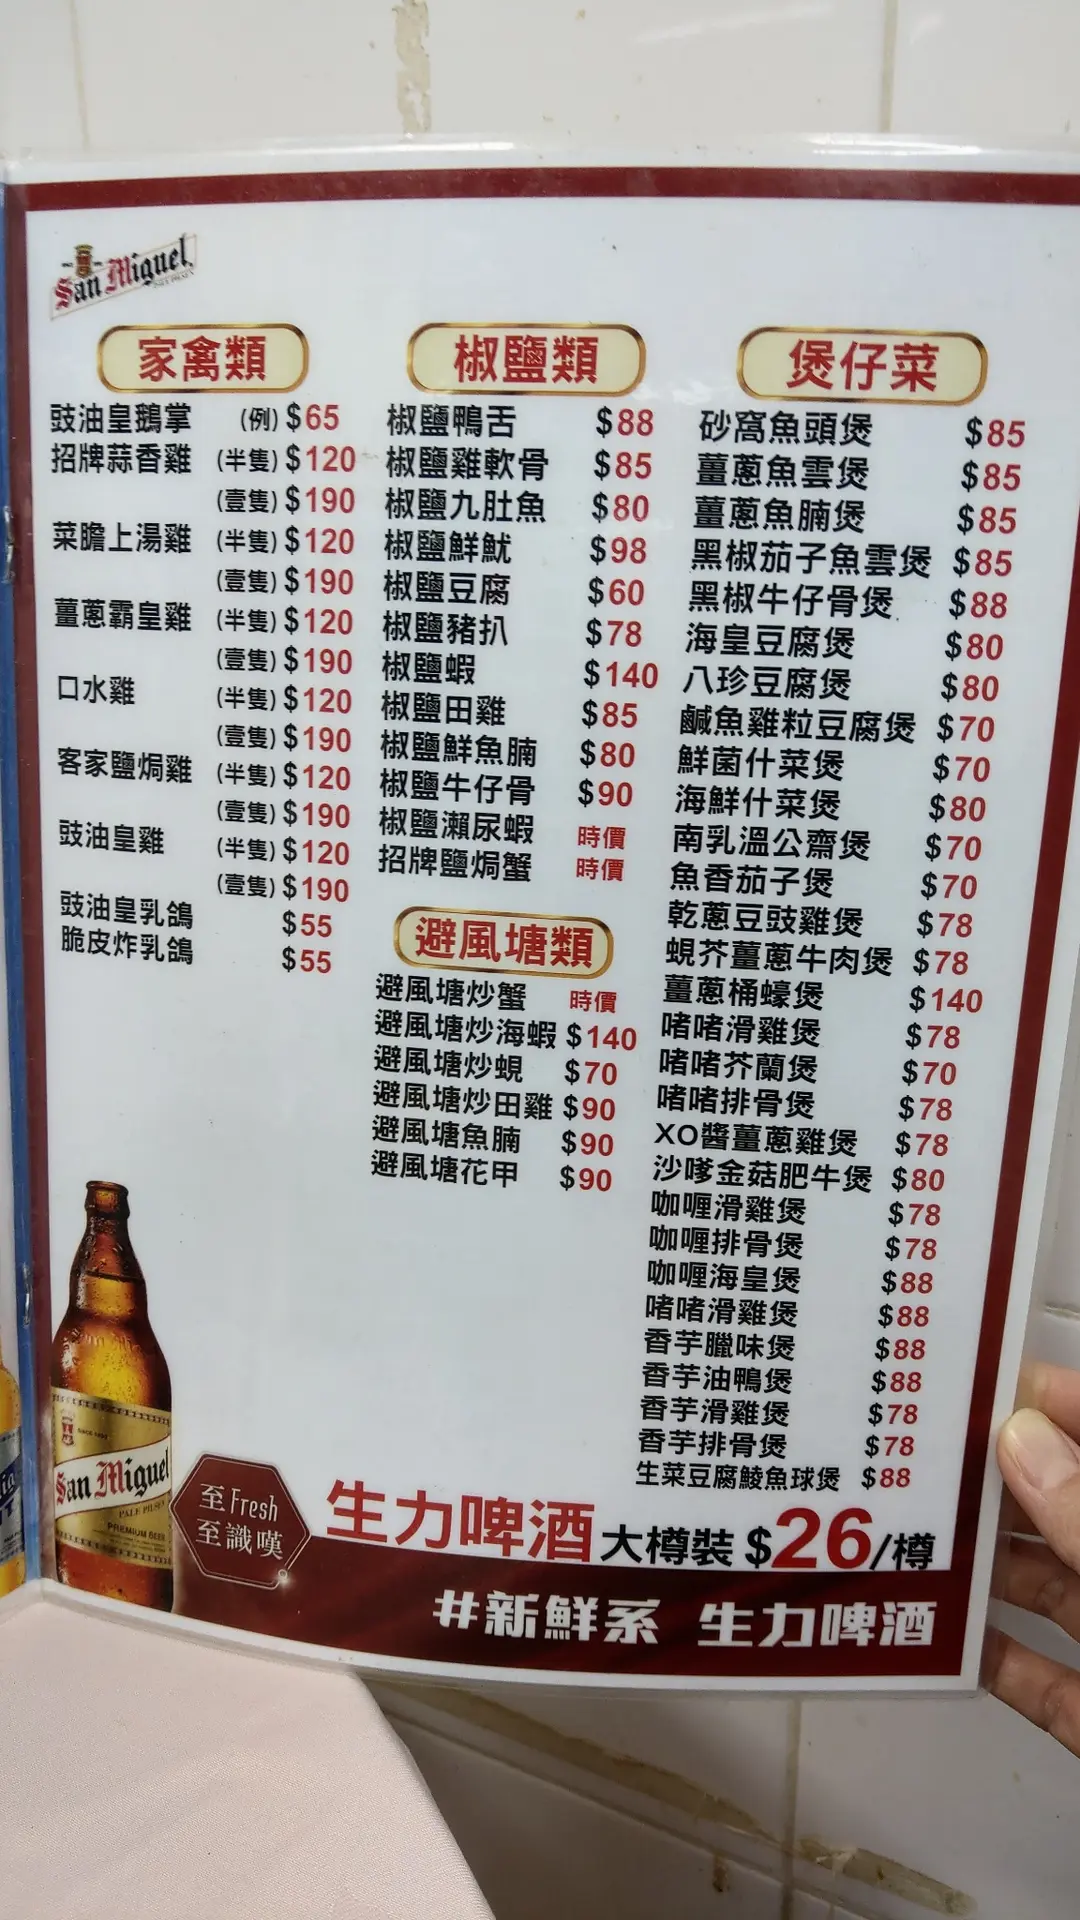 San Miguel
家禽類
豉油皇鵝掌 (例) $65
招牌蒜香雞 (半隻) $120
(壹隻) $190
菜膽上湯雞 (半隻) $120
(壹隻) $190
薑蔥霸皇雞 (半隻) $120
(壹隻) $190
口水雞 (半隻) $120
(壹隻) $190
客家鹽焗雞 (半隻) $120
(壹隻) $190
豉油皇雞 (半隻) $120
(壹隻) $190
豉油皇乳鴿 $55
脆皮炸乳鴿 $55
椒鹽類
椒鹽鴨舌 $88
椒鹽雞軟骨 $85
椒鹽九肚魚 $80
椒鹽鮮魷 $98
椒鹽豆腐 $60
椒鹽豬扒 $78
椒鹽蝦 $140
椒鹽田雞 $85
椒鹽鮮魚腩 $80
椒鹽牛仔骨 $90
椒鹽瀨尿蝦 時價
招牌鹽焗蟹 時價
避風塘類
避風塘炒蟹 時價
避風塘炒海蝦 $140
避風塘炒蜆 $70
避風塘炒田雞 $90
避風塘魚腩 $90
避風塘花甲 $90
煲仔菜
砂窩魚頭煲 $85
薑蔥魚雲煲 $85
薑蔥魚腩煲 $85
黑椒茄子魚雲煲 $85
黑椒牛仔骨煲 $88
海皇豆腐煲 $80
八珍豆腐煲 $80
鹹魚雞粒豆腐煲 $70
鮮菌什菜煲 $70
海鮮什菜煲 $80
南乳溫公齋煲 $70
魚香茄子煲 $70
乾蔥豆豉雞煲 $78
蜆芥薑蔥牛肉煲 $78
薑蔥桶蠔煲 $140
啫啫滑雞煲 $78
啫啫芥蘭煲 $70
啫啫排骨煲 $78
XO醬薑蔥雞煲 $78
沙嗲金菇肥牛煲 $80
咖喱滑雞煲 $78
咖喱排骨煲 $78
咖喱海皇煲 $88
啫啫滑雞煲 $88
香芋臘味煲 $88
香芋油鴨煲 $88
香芋滑雞煲 $78
香芋排骨煲 $78
生菜豆腐鯪魚球煲 $88
San Miguel
PALE PILSEN
PREMIUM BEER
至Fresh
至識嘆
生力啤酒 大樽裝 $26/樽
#新鮮系 生力啤酒